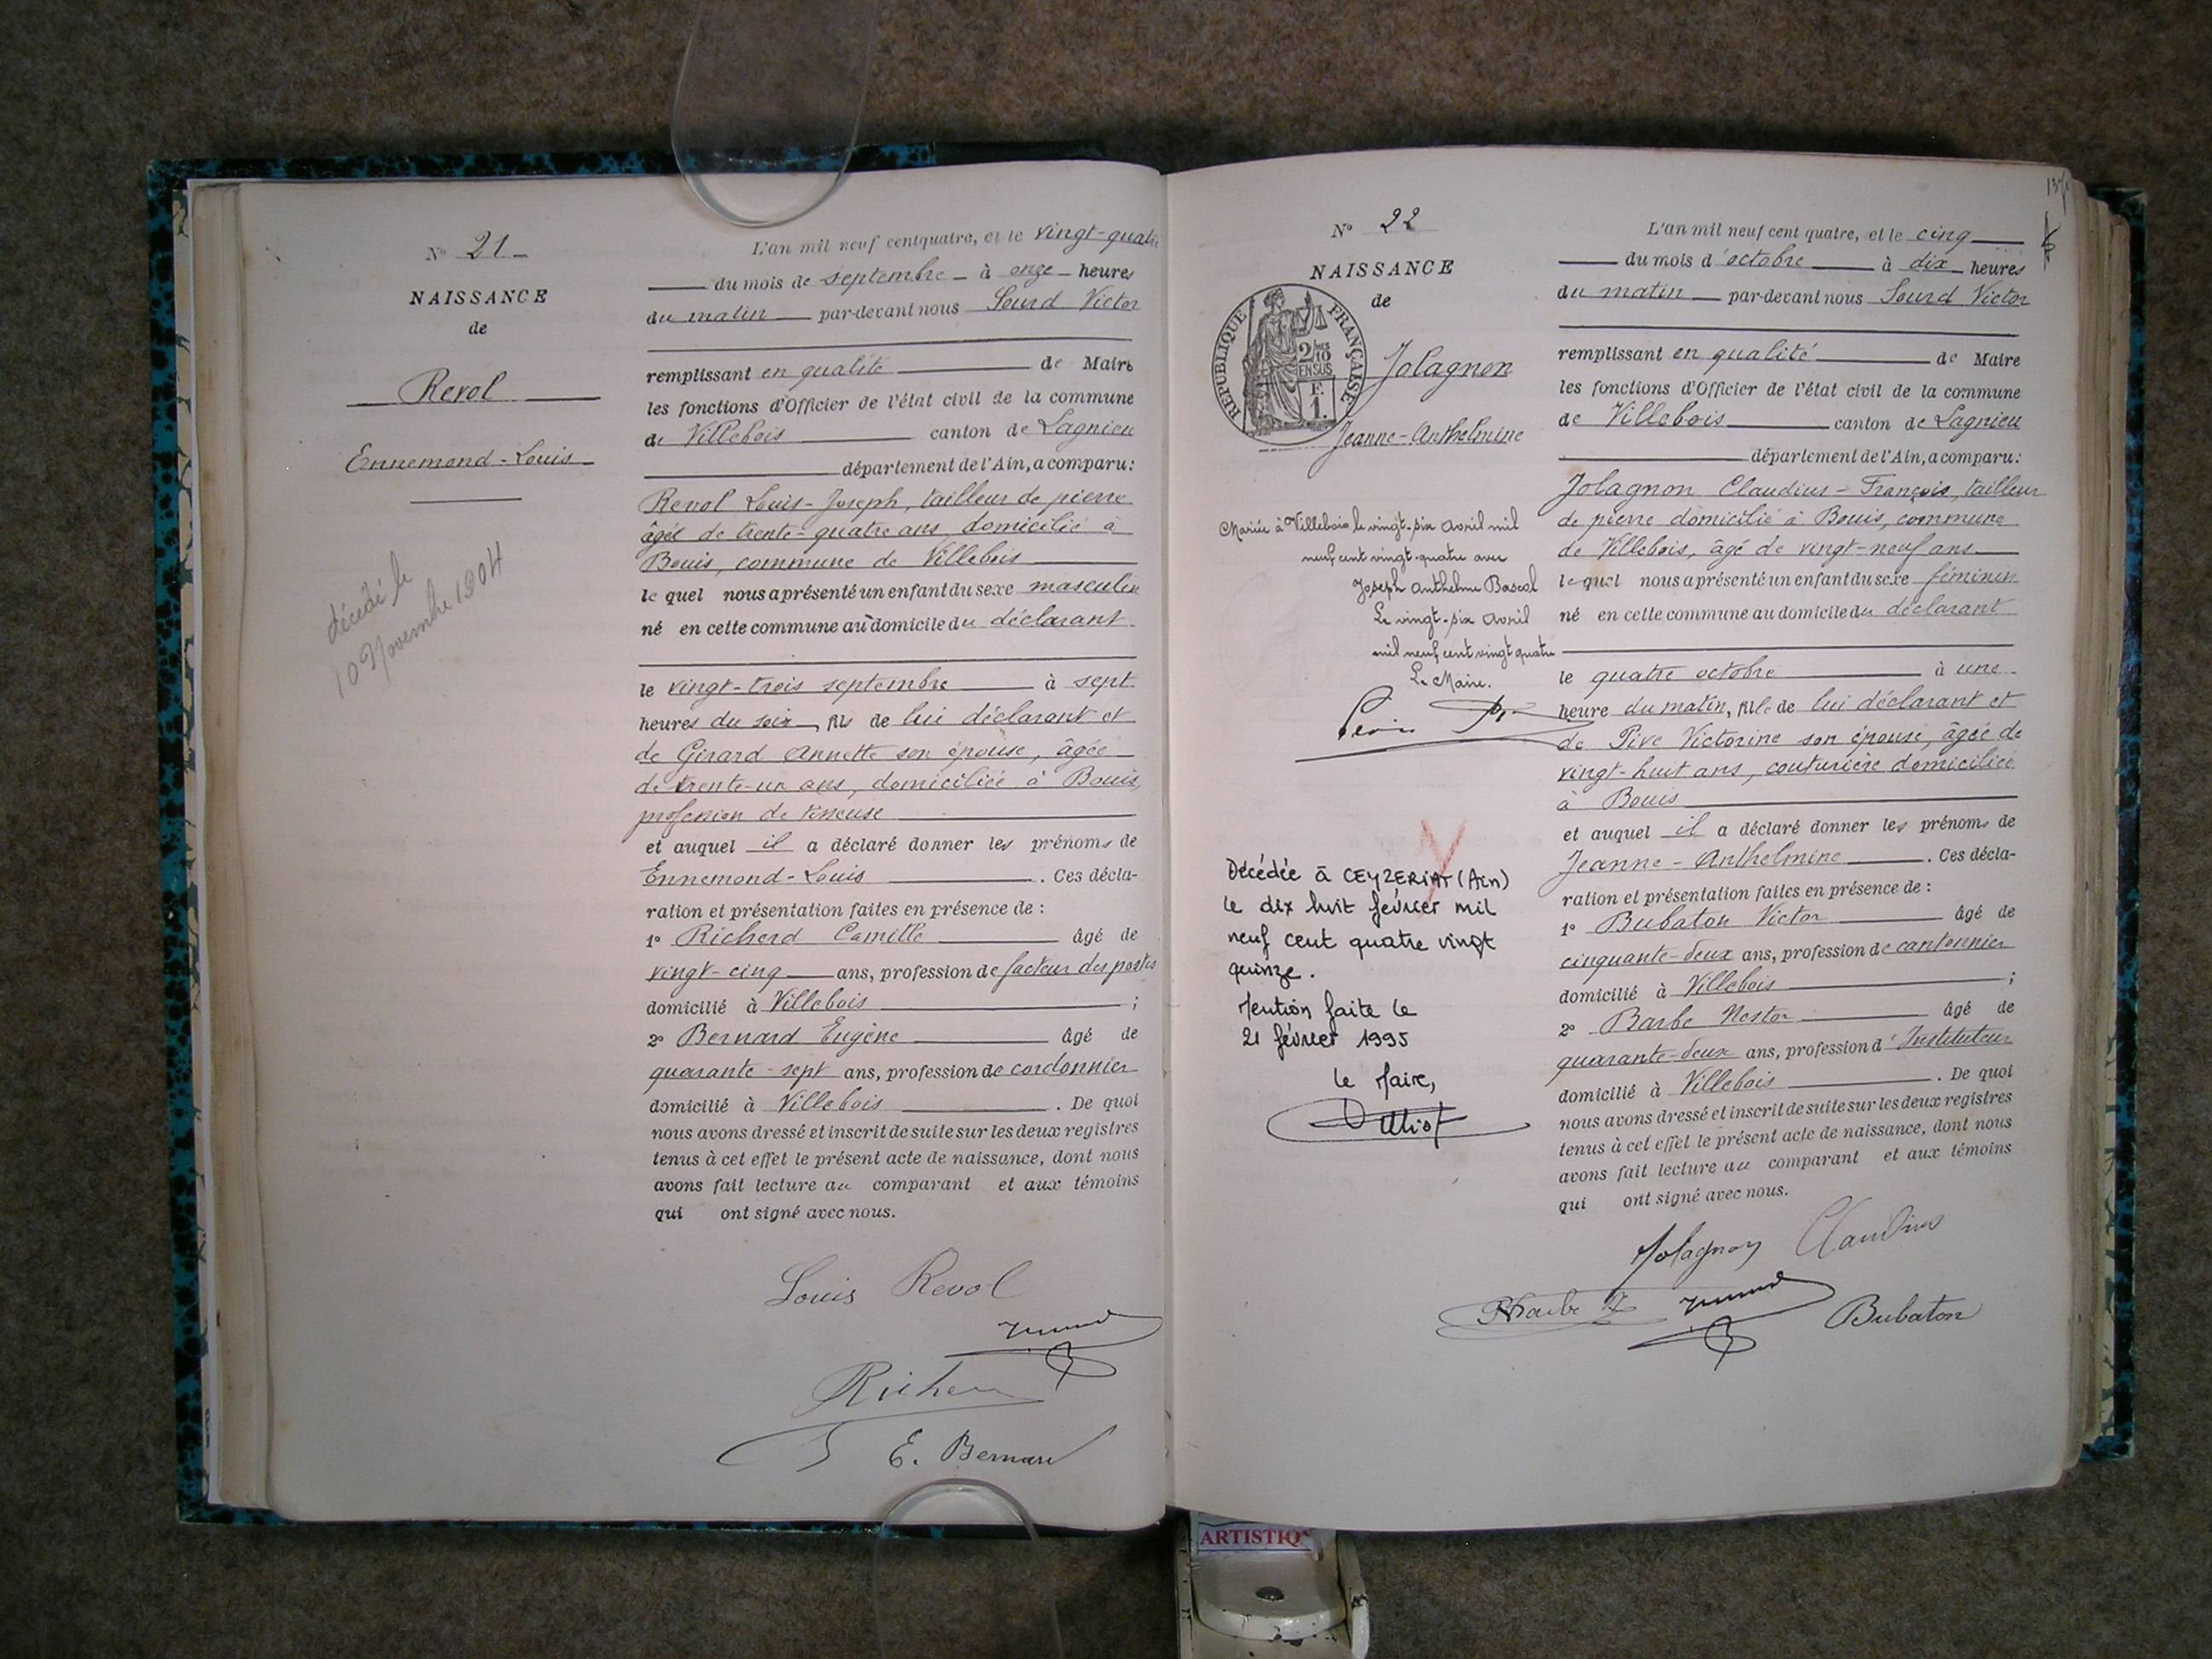 N° 21
NAISSANCE
de
Revol
Ennemond-Louis
décédé le
10 Novembre 1904
L'an mil neuf cent quatre, et le vingt-quatre
du mois de septembre à onze heures
du matin par-devant nous Sourd Victor
remplissant en qualité de Maire
les fonctions d'Officier de l'état civil de la commune
de Villebois canton de Lagnieu
département de l'Ain, a comparu:
Revol Louis-Joseph, tailleur de pierre
âgé de trente-quatre ans, domicilié à
Bouis, commune de Villebois
le quel nous a présenté un enfant du sexe masculin
né en cette commune au domicile du déclarant
le vingt-trois septembre à sept
heures du soir, fils de lui déclarant et
de Girard Annette son épouse, âgée
de trente-un ans, domiciliée à Bouis,
profession de
et auquel il a déclaré donner les prénoms de
Ennemond-Louis. Ces décla-
ration et présentation faites en présence de :
1° Richerd Camille âgé de
vingt-cinq ans, profession de facteur des postes
domicilié à Villebois ;
2° Bernard Eugène âgé de
quarante-sept ans, profession de cordonnier
domicilié à Villebois. De quoi
nous avons dressé et inscrit de suite sur les deux registres
tenus à cet effet le présent acte de naissance, dont nous
avons fait lecture au comparant et aux témoins
qui ont signé avec nous.
Louis Revol
E. Bernard
137
N° 22
NAISSANCE
de
REPUBLIQUE FRANÇAISE
2/10
EN SUS
F.
1.
Jolagnon
Jeanne-Anthelmine
Mariée à Villebois le vingt-six avril mil
neuf cent vingt-quatre avec
Joseph Anthelme Bascal
Le vingt-six avril
mil neuf cent vingt quatre
Le Maire.
Décédée à CEYZERIAT (Ain)
le dix huit février mil
neuf cent quatre vingt
quinze.
Mention faite le
21 février 1995
le Maire,
L'an mil neuf cent quatre, et le cinq
du mois d'octobre à dix heures
du matin par-devant nous Sourd Victor
remplissant en qualité de Maire
les fonctions d'Officier de l'état civil de la commune
de Villebois canton de Lagnieu
département de l'Ain, a comparu:
Jolagnon Claudius-François, tailleur
de pierre domicilié à Bouis, commune
de Villebois, âgé de vingt-neuf ans
le quel nous a présenté un enfant du sexe féminin
né en cette commune au domicile du déclarant
le quatre octobre à une
heure du matin, fille de lui déclarant et
de Pive Victorine son épouse, âgée de
vingt-huit ans, couturière domiciliée
à Bouis
et auquel il a déclaré donner les prénoms de
Jeanne-Anthelmine. Ces décla-
ration et présentation faites en présence de :
1° Bubaton Victor âgé de
cinquante-deux ans, profession de cantonnier
domicilié à Villebois ;
2° Barbe Nestor âgé de
quarante-deux ans, profession d'Instituteur
domicilié à Villebois. De quoi
nous avons dressé et inscrit de suite sur les deux registres
tenus à cet effet le présent acte de naissance, dont nous
avons fait lecture au comparant et aux témoins
qui ont signé avec nous.
Jolagnon Claudius
Bubaton
ARTISTIQ